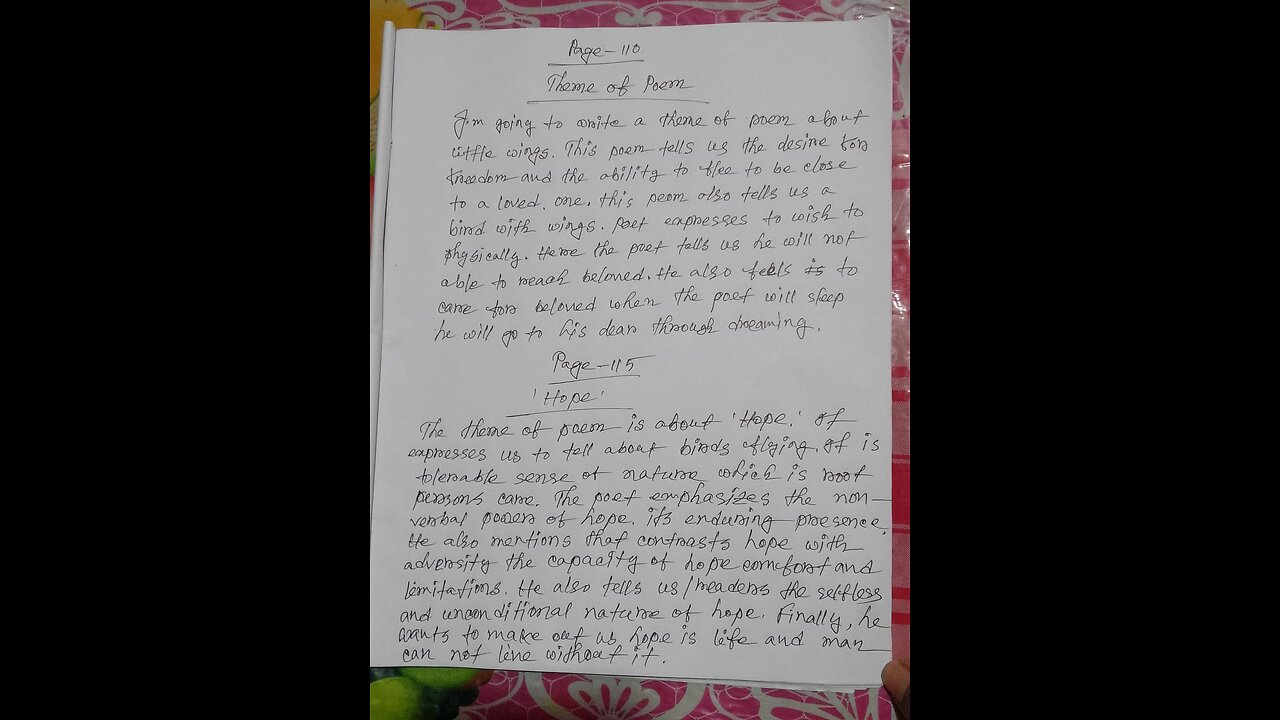 Page-110
Theme of Poem
I'm going to write a theme of poem about
little wings. This poem tells us the desire for
freedom and the ability to flee to be close
to a loved. one. this peom also tells us a
bird with wings. Poet expresses to wish to
physically. Here the poet tells us he will not
able to reach beloved. He also feels is to
care for beloved when the poet will sleep
he will go to his dear through dreaming.
Page-115
'Hope'
The theme of poem is about 'Hope.' It
expresses us to tell about birds flying. It is
tolerable sense of nature which is root
persons care. The poet emphasizes the non-
verbal power of hope. it's enduring presence.
He also mentions that contrasts hope with
adversity the capacity of hope comfort and
limitations. He also tells us/readers the selfless
and unconditional nature of hope. Finally, he
wants to make out us hope is life and man
can not live without it.